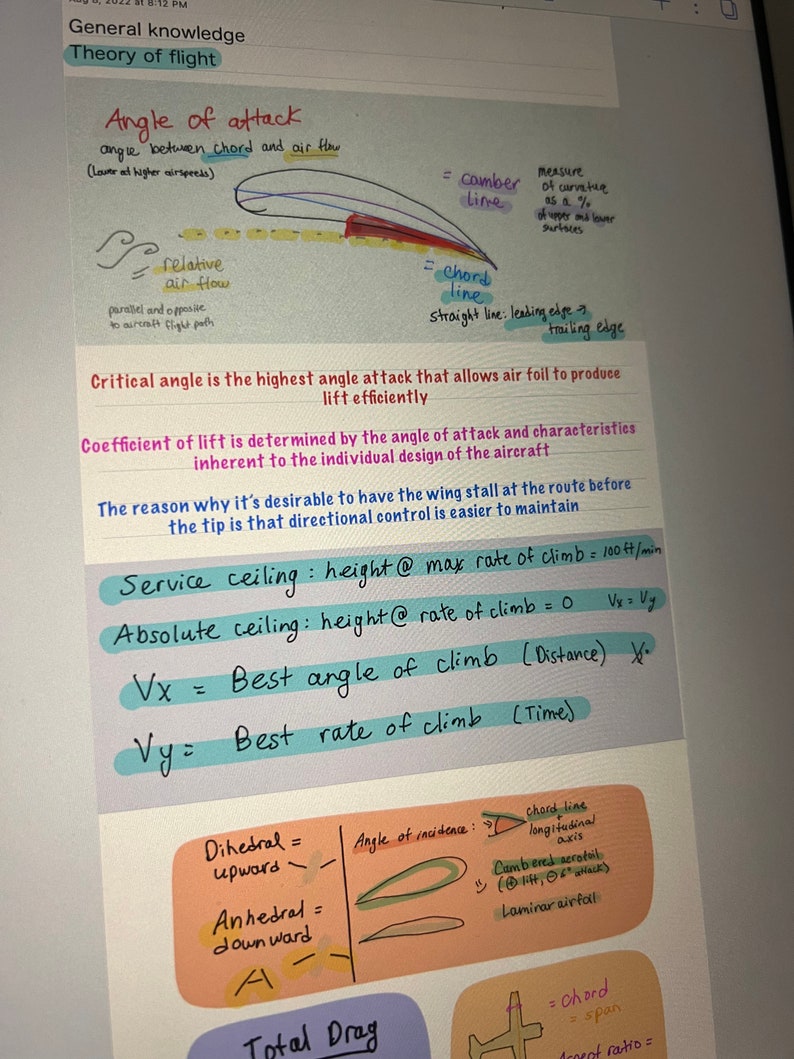 2022 at 8:12 PM
General knowledge
Theory of flight
Angle of attack
angle between chord and air flow
(Lower at higher airspeeds)
= camber
line
measure
of curvature
as a %
of upper and lower
surfaces
= relative
air flow
parallel and opposite
to aircraft flight path
= chord
line
straight line: leading edge →
trailing edge
Critical angle is the highest angle attack that allows air foil to produce
lift efficiently
Coefficient of lift is determined by the angle of attack and characteristics
inherent to the individual design of the aircraft
The reason why it's desirable to have the wing stall at the route before
the tip is that directional control is easier to maintain
Service ceiling : height @ max rate of climb = 100 ft/min
Absolute ceiling : height @ rate of climb = 0 Vx = Vy
Vx = Best angle of climb (Distance)
Vy = Best rate of climb (Time)
Dihedral =
upward
Anhedral =
downward
Angle of incidence :
chord line
+
longitudinal
axis
Cambered aerofoil
(⊕ lift, ⊖ attack)
Laminar airfoil
Total Drag
= chord
= span
Aspect ratio =